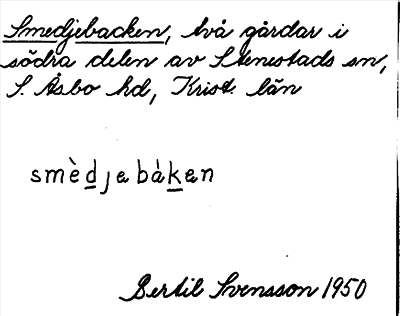 Smedjebacken, två gårdar i
södra delen av Stenestads sn,
S. Åsbo hd, Krist. län
smèdjebáken
Bertil Svensson 1950